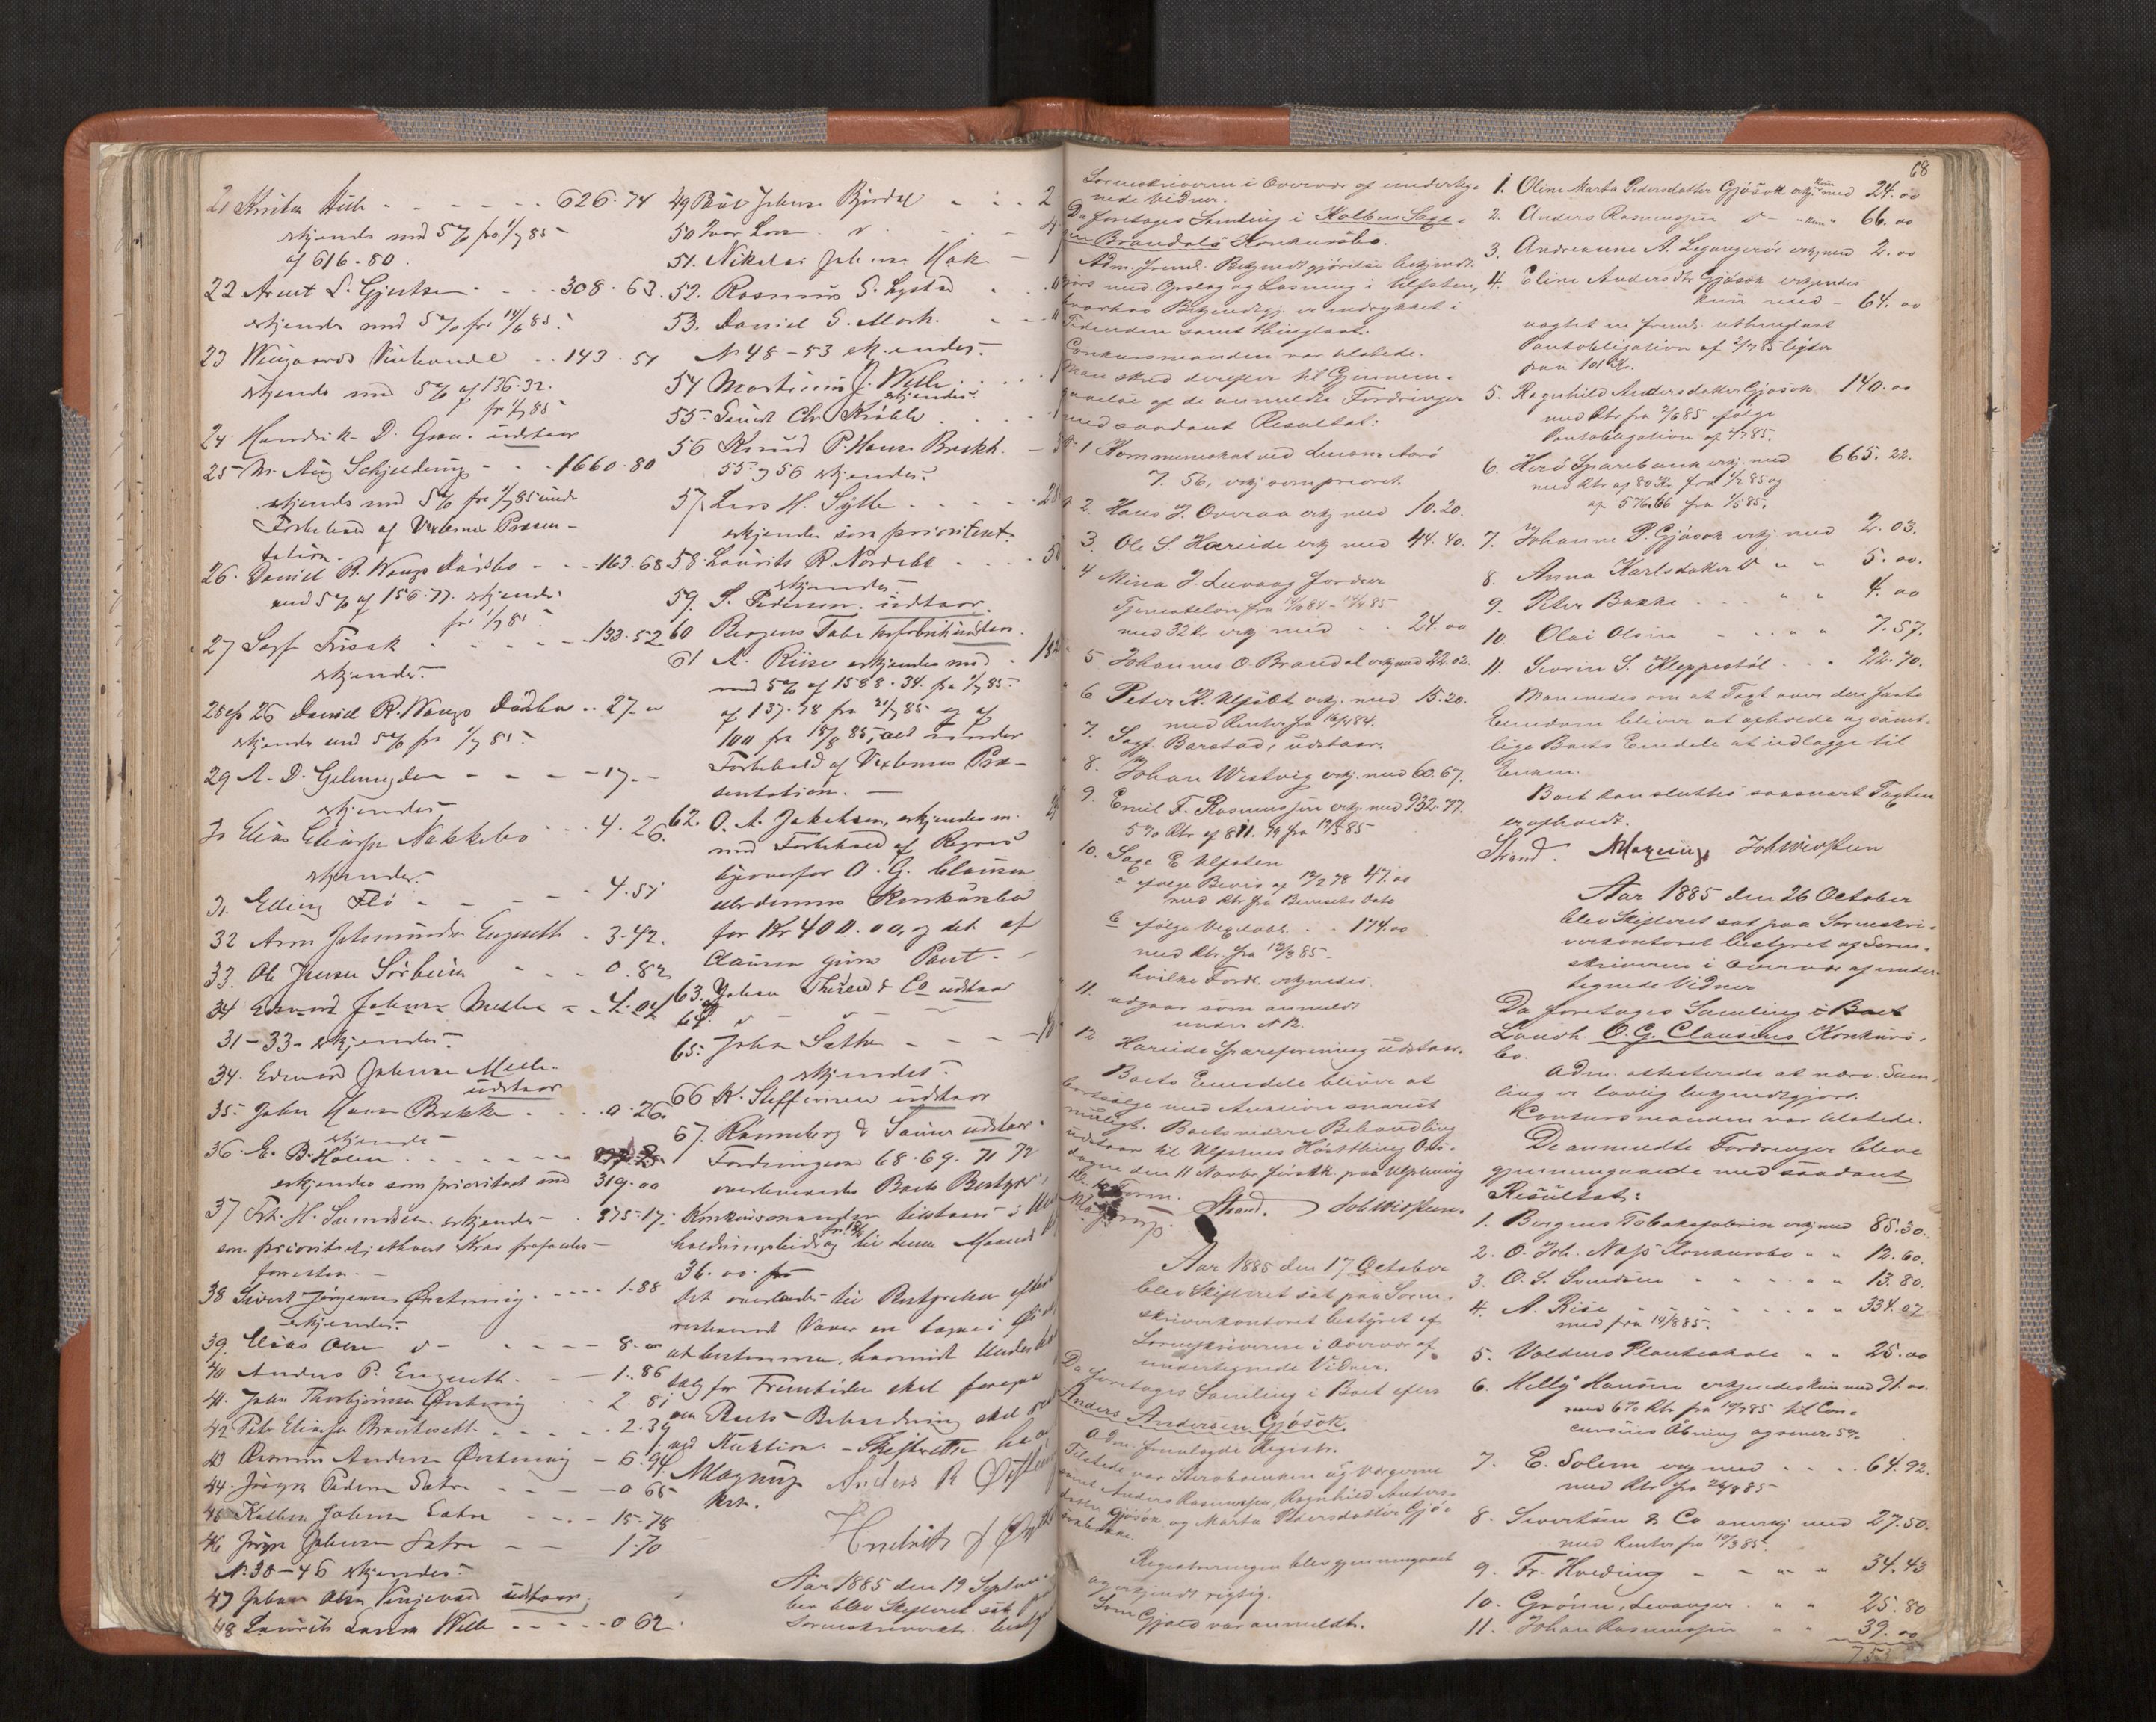 21 Kristen Hille - - - - - - 626.74
erkjendes med 5% fra 1/7 85
af 616.80.
22 Arent L. Gjertsen - - - 308.63.
erkjendes med 5% fra 14/6 85.
23 Wingaards Vinhandel - - 143.51
erkjendes med 5% af 136.32.
fr 1/7 85
24 Hendrik D. Grau. udstaar
25 M. Aug Schjelderup - - - 1660.80
erkjendes med 5% fra 1/7 85 under
Forbehold af Vexlernes Præsen-
tation.
26. Daniel R. Waugs Dødsbo - - - 163.68
med 5% af 156.77. erkjendes
fr 1/7 85
27 Sagf Frisak - - - - 133.52
erkjendes.
28 cfr 26 Daniel R. Waugs Dødsbo .. 27.
erkjendes med 5% fra 1/7 85.
29 A. D. Gelmuyden - - - - 17.-
erkjendes
30 Elias Eliasse Nakkebo - - - 4.26.
erkjendes.
31. Elling Flø - - - - - 4.51
32 Arne Engeseth - 3.42.
33. Ole Jensen Sørheim - - - 0.82
34 Edvard Johnsen Melle - - 4.04
31-33 erkjendes.
34. Edvard Johnsen Melle.
udstaar
35. John Hansen Brekke . . . 0.26.
erkjendes
36. E. B. Holen . . . . . . .
erkjendes som prioriteret med 319.00
37 Frk. H. Svendsen. erkjendes - . 875.17.
som prioriteret, ethvert Krav frafaldes
forresten.
38 Sivert Jørgensen Ørstenvig. - - - 1.88
erkjendes.
39. Elias Olsen d - - - - 8.00
40 Anders P. Engeseth. - - - 1.86
41. John Thorbjørnsen Ørstenvig . . 2.81
42 Petter Eliasse - - - - 2.39
43 Rasmus Andersen Ørstenvig - 6.94
44. Jørgen Pedersen Sætre - - - 0 65
45 Kolben Johnsen Sætre - - - 15.78
46 Jørgen Johnsen Sætre - - 1.70
N. 38-46 erkjendes.
47 Johan Olsen udstaar.
48 Laurits Larsen Welle - - - - 0 62.
49 Paul Johnsen Bjørdal - . . 2.
50 Iver Larsen . d . . - - 4
51. Nikolai Johnsen Hak - - 1
52. Rasmus S. Lystad . . 0
53. Daniel S. Mork. - -
N 48-53 erkjendes.
54 Martinus J. Welle . . . .
erkjendes.
55. Sivert Chr Kråble . . .
56 Knud P. Hansen Brekke. -
55 og 56 erkjendes.
57. Lars H. Sylte . - - -
erkjendes som prioriteret.
58. Laurits R. Nordebø . . . .
erkjendes.
59. S. Pedersen. udstaar.
60 Bergens Tobaksfabrik udstaar.
61 A. Riise erkjendes med .
med 5% af 1588.34. fra 1/7 85.
af 137.78 fra 21/7 85 og af
100 fra 15/8 85, alt under
Forbehold af Vexlernes Præ-
sentation. -
62. O. A. Jakobsen, erkjendes m.
med Forbehold af Regres
ligeoverfor O. G. Clausen
eller dennes Konkursbo
for Kr 400.00, og det af
Clausen givne Pant. -
63. Johan Thesen & Co udstaar
64. d - d -
65. John Sæthre - - - -
erkjendes.
66 K. Steffensen udstaar
67. Rønneberg & Sønner udstaar.
Fordringerne 68. 69. 71 72
overleveredes Boets Bestyrer
Konkursmanden tilstaaes i Under-
holdningsbidrag fra til denne Maaned
36.00. fra
Det overlades til Bestyrelsen
Varer en
at bestemme, hvormeget
salg for Fremtiden skal foregaa
om Boets Beholdning skal
ved Auktion. - Skifteretten hævet
MMagnus Anders R Ørsten
Kst.
Aar 1885 den 19 Septem-
ber blev Skifteret sat paa
Sorenskriverktr. besty
Sorenskriveren i Overvær af undertég-
nede Vidner.
Da foretages Samling i Kolben Sage-
sen Brandals Konkursbo.
Adm. freml. Bekjendtgjørelse bekjendt-
gjort med Opslag og Læsning i Ulfsten,
hvorhos Bekjendtgj. er indrykket i
Tidenden samt thinglæst.
Konkursmanden var tilstede.
Man skred derefter til Gjennem-
gaaelse af de anmeldte Fordringer
med saadant Resultat:
1 Kommuneskat ved
7.56, erkj som prioret.
2. Hans J. Overaa erkj med 10.20.
3. Ole S. Hareide erkj med 44.40.
4 Mina J. Luvaag fordrer
Tjenesteløn fra 14/10 84 - 14/4 85
med 32 Kr erkj med . . 24.00
5 Johannes O. Brandal erkj med 22.02.
6 Peter K. Ulfsæt erkj. med 15.20.
med Renter fra 16/4 84.
7. Sagf. Barstad, udstaar.
8. Johan Westvig erkj. med 60.67.
9. Emil F. Rasmussen erkj. med 932.77.
5% Rtr af 811.79 fra 19/3 85
10. Sage E Ulfsten
a ifølge Bevis af 12/2 78 47.00
med Rtr fra Bevisets Dato
b ifølge Vexelobl. . . 174.00
med Rtr fra 12/3 85.
hvilke Fordr. erkjendes.
11. udgaar som anmeldt
under N 12.
12. Hareide Spareforening udstaar.
Boets Eiendele bliver at
bortsælge med Auktion snarest
muligt. Boets videre Behandling
udstaar til Ulfstens Høstthing Ons-
dagen den 11 Novbr førstk. paa Ulfstenvig
Kl. 10 Form.
MMagnus Strand. Joh Wiksteen.
Aar 1885 den 17 October
blev Skifteret sat paa Soren-
skriverkontoret bestyret af
Sorenskriveren i Overvær af
undertegnede Vidner.
Da foretages Samling i Boet efter
Anders Andersen Gjøsok.
Adm. fremlagde Registr.
Tilstede var Stervboenken og Værgerne
samt Anders Rasmussen, Ragnhild Anders-
datter Gjøsok og Marta Pedersdatter Gjø-
sokbakke.
Registreringen blev gjennemgaaet
og erkjendt rigtig.
Som Gjæld var anmeldt.
68
1. Oline Marta Pedersdatter Gjøsok erkj. kun med 24.00
2. Anders Rasmussen d - " kun " 66.00
3. Andreanne A. Legangerør erkj med 2.00
4. Eline Andersdtr Gjøsok erkjendes
kun med - 64.00
uagtet en freml. uthinglæst
Pantobligation af 2/7 85 lyder
paa 101 Kr.
5. Ragnhild Andersdatter Gjøsok 140.00
med Rtr fra 2/6 85 ifølge
Pantobligation af 2/7 85.
6. Herø Sparebank erkj. med 665.22.
med Rtr af 80 Kr. fra 1/2 85 og
af 576.66 fra 1/5 85.
7. Johanne P. Gjøsok erkj. med 2.03.
8. Anna Karlsdatter d " " 5.00.
9. Peter Bakke . . . " " 4.00
10. Olai Olsen - - . . " " 7.57.
11. Severin S. Kleppestøl . . . 22.70.
Manenedes om at Taxt over den faste
Eiendom bliver at afholde og samt-
lige Boets Eiendele at udlægge til
Enken.
Boet kan sluttes saasnart Taxten
er afholdt.
Strand. MMagnus Joh Wiksteen
Aar 1885 den 26 October
blev Skifteret sat paa Sorenskri-
verkontoret bestyret af Soren-
skriveren i Overvær af under-
tegnede Vidner
Da foretages Samling i Boet
Landh. O. G. Clausens Konkurs-
bo.
Adm. attesterede at nærv. Sam-
ling er lovlig bekjendtgjort.
Konkursmanden var tilstede.
De anmeldte Fordringer bleve
gjennemgaaede med saadant
Resultat:
1. Bergens Tobaksfabrik erkj med 85.30.
2. O. Joh. Næss Konkursbo " " 12.60.
3. O. S. Svendsen " - - - " " 13.80.
4. A. Rise - - - - - " " 334.07
med fra 14/8 85.
5. Voldens Planteskole " " 25.00
6. Helly Hansen erkjendes kun med 91.00.
med 6% Rtr fra 10/7 85 til Con-
cursens Åbning og senere 5%
7. E. Solem erkj med . . . . 64.92.
med Rtr fra 24/8 85
8. Sivertsen & Co anerkj med 27.50.
med Renter fra 10/3 85.
9. Fr. Hveding - - " " 34.43
10. Grønn, Levanger . " " 25.80
11. Johan Rasmussen " " 39.00